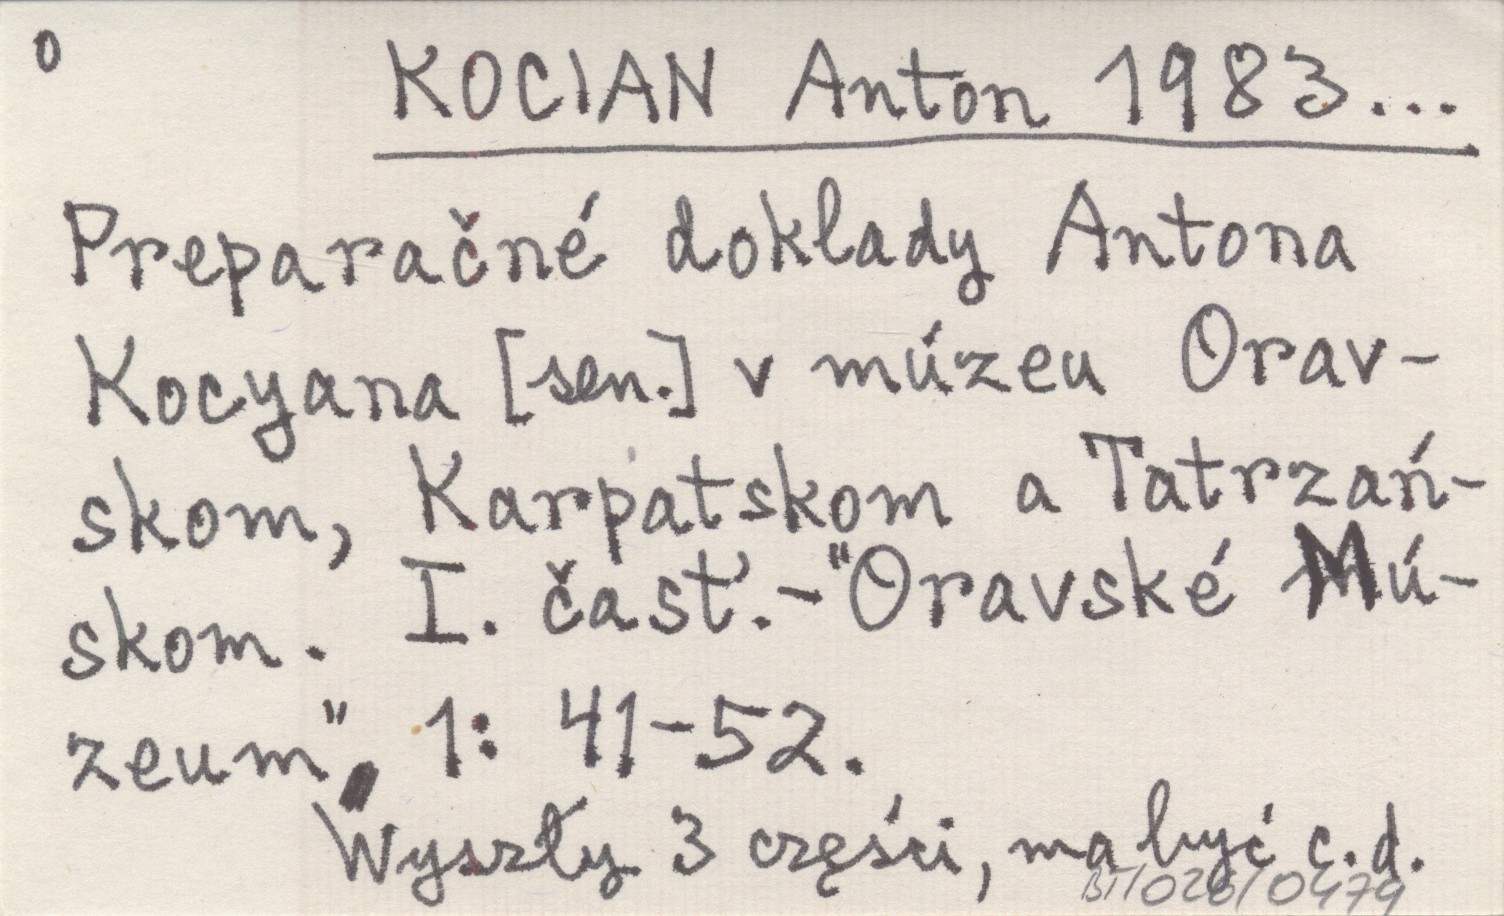 o
KOCIAN Anton 1983...
Preparačné doklady Antona
Kocyana [sen.] v múzeu Orav-
skom, Karpatskom a Tatrzań-
skom. I. časť.-"Oravské Mú-
zeum" 1: 41-52.
Wyszły 3 części, ma być c.d.
BT/026/0479